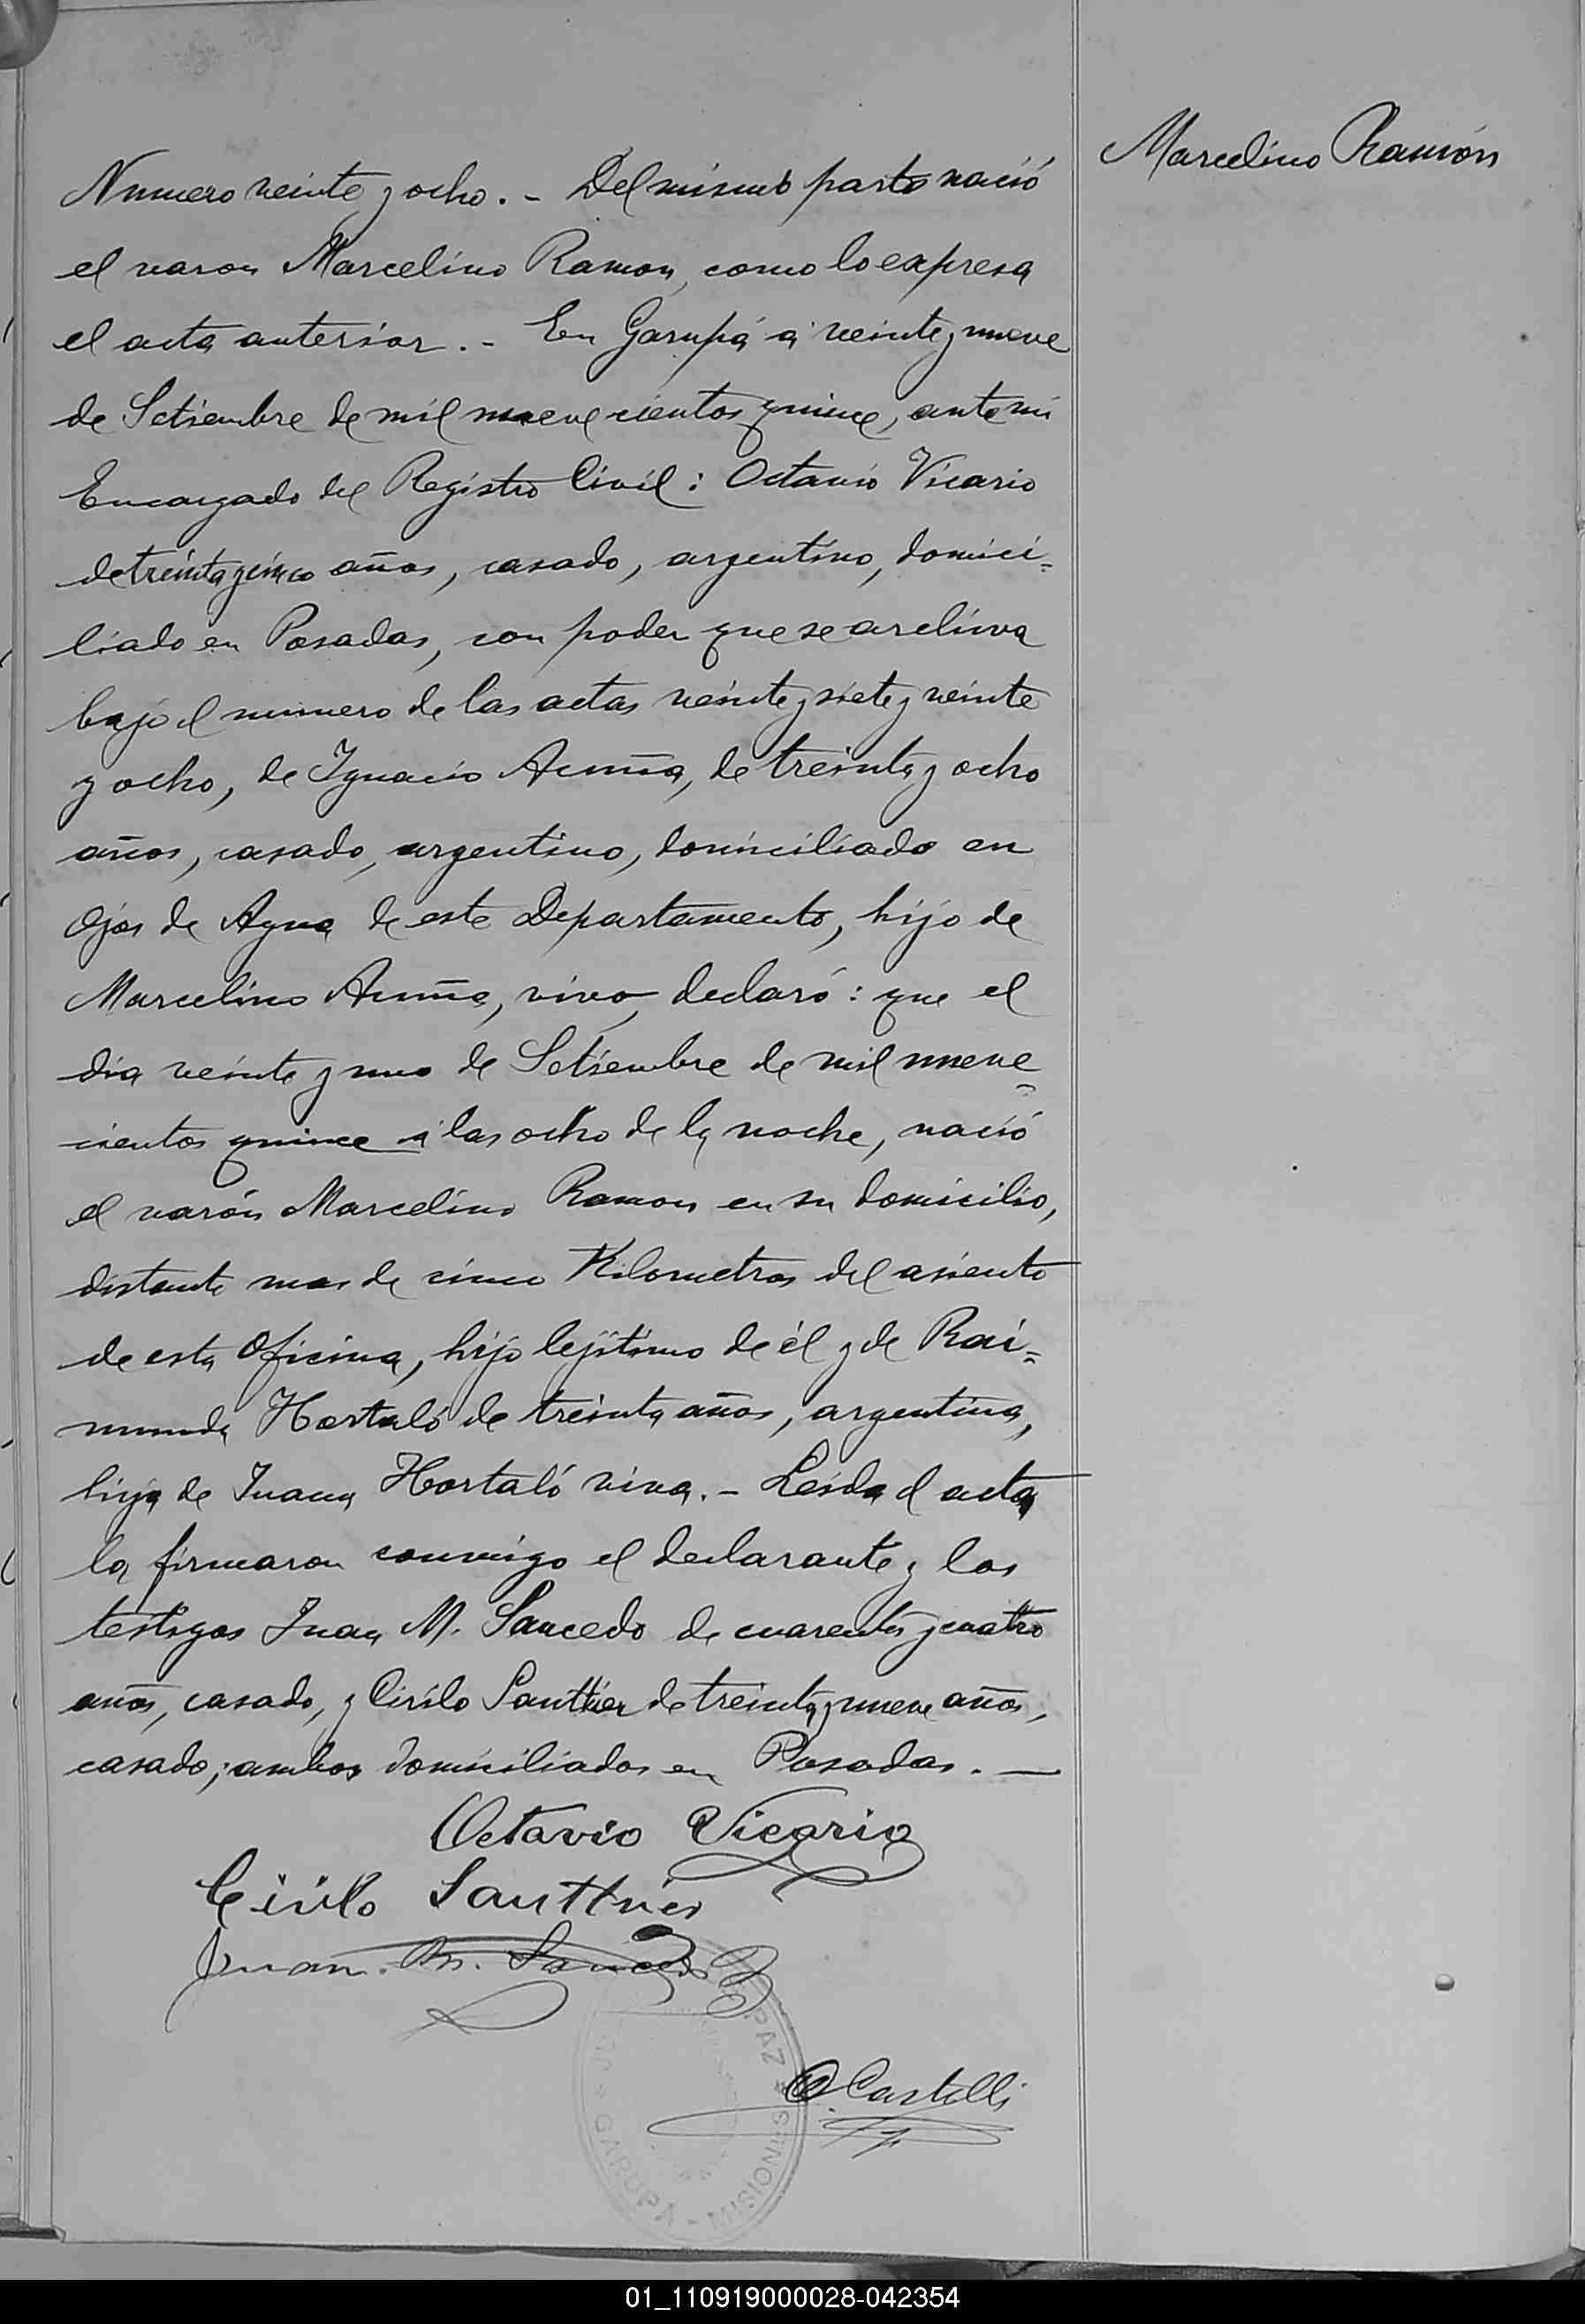 Marcelino Ramón
Numero veinte y ocho. - Del mismo parto nació
el varon Marcelino Ramon, como lo expresa
el acta anterior. - En Garupá á veinte y nueve
de Setiembre de mil nueve cientos quince, ante mi
Encargado del Registro Civil: Octavio Vicario
de treinta y cinco años, casado, argentino, domici=
liado en Posadas, con poder que se archiva
bajo el numero de las actas veinte y siete y veinte
y ocho, de Ignacio Acuña, de treinta y ocho
años, casado, argentino, domiciliado en
Ojos de Agua de este Departamento, hijo de
Marcelino Acuña, vivo, declaró: que el
dia veinte y uno de Setiembre de mil nueve=
cientos quince á las ocho de la noche, nació
el varón Marcelino Ramon en su domicilio,
distante mas de cinco Kilometros del asiento
de esta Oficina, hijo lejítimo de él y de Rai=
munda Hortaló de treinta años, argentina,
hija de Juana Hortaló viva. - Leida el acta
la firmaron conmigo el declarante y los
testigos Juan M. Saucedo de cuarenta y cuatro
años, casado, y Cirilo Santtier de treinta y nueve años,
casado; ambos domiciliados en Posadas. —
Octavio Vicario
Cirilo Santtier
Juan. M. Saucedo
PAZ
O. Castelli
GARUPÁ - MISIONES
01_110919000028-042354